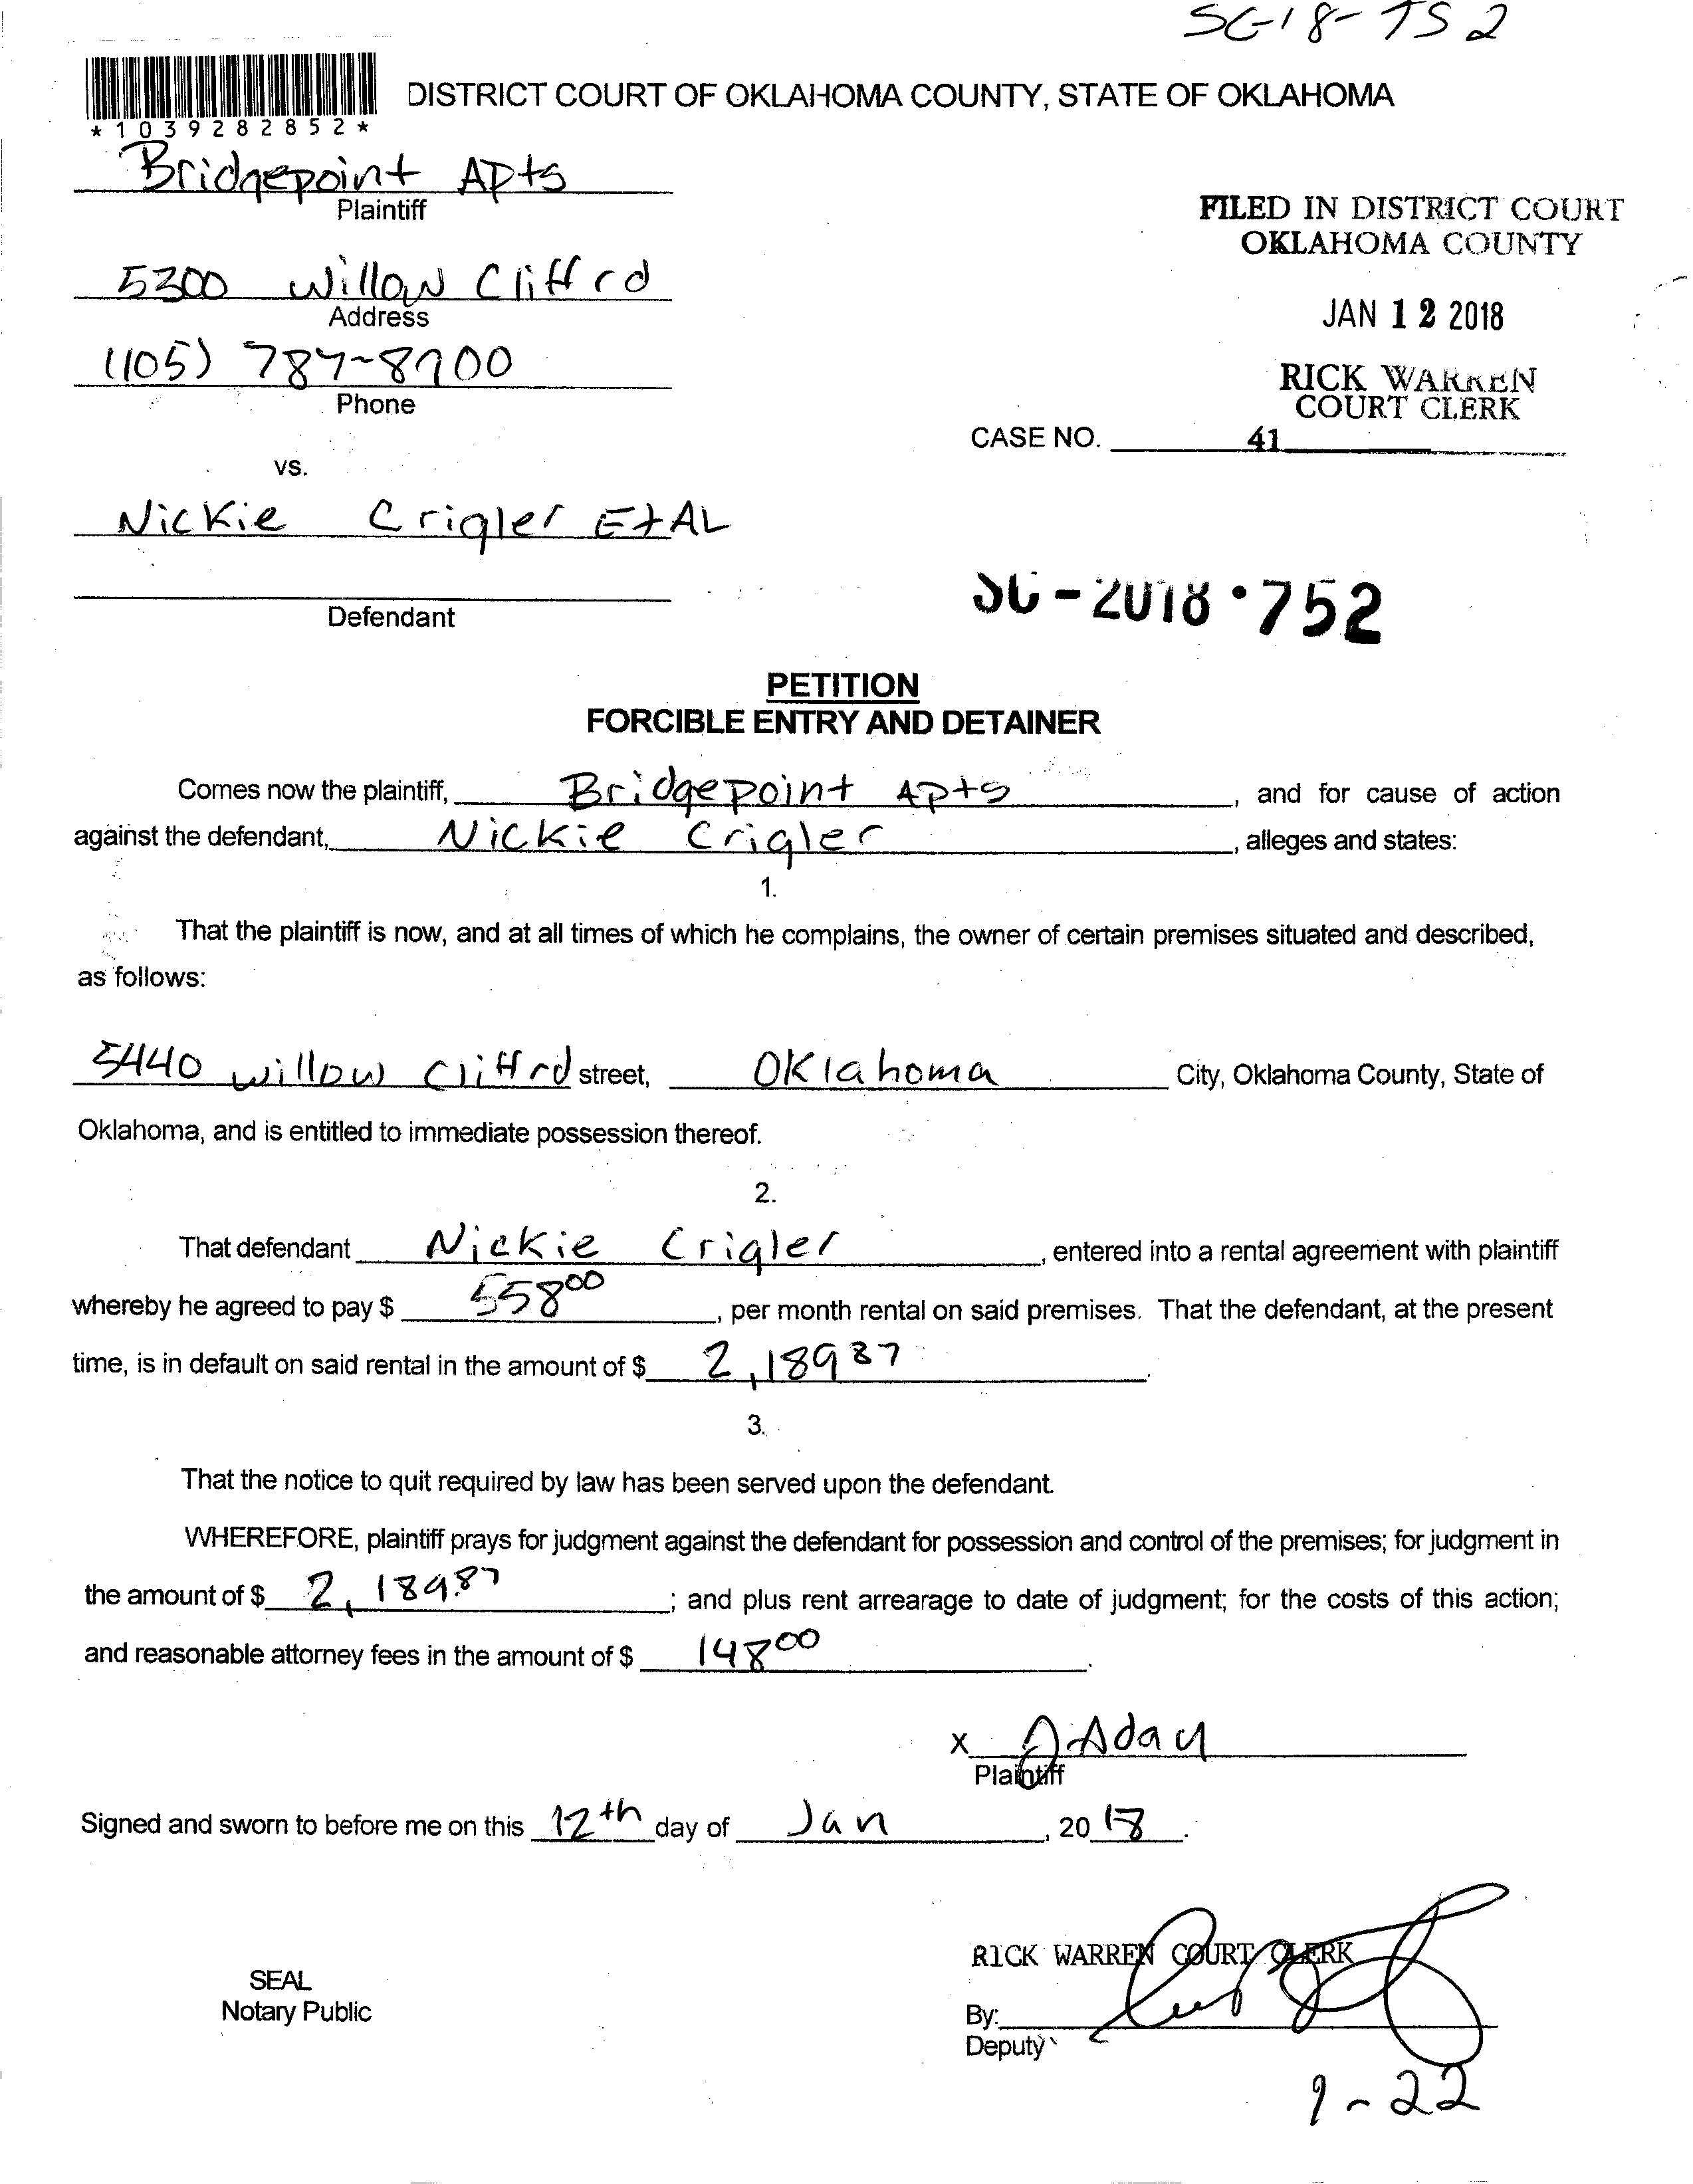 SC-18-752
DISTRICT COURT OF OKLAHOMA COUNTY, STATE OF OKLAHOMA
*1039282852*
Bridgepoint Apts
Plaintiff
FILED IN DISTRICT COURT
OKLAHOMA COUNTY
5300 Willow Cliff rd
Address
JAN 12 2018
(105) 787-8700
Phone
RICK WARREN
COURT CLERK
CASE NO. 41
vs.
Nickie Crigler Et AL
SC-2018-752
Defendant
PETITION
FORCIBLE ENTRY AND DETAINER
Comes now the plaintiff, Bridgepoint Apts, and for cause of action
against the defendant, Nickie Crigler, alleges and states:
1.
That the plaintiff is now, and at all times of which he complains, the owner of certain premises situated and described,
as follows:
5440 willow Cliff rd street, Oklahoma City, Oklahoma County, State of
Oklahoma, and is entitled to immediate possession thereof.
2.
That defendant Nickie Crigler, entered into a rental agreement with plaintiff
whereby he agreed to pay $ 558 00, per month rental on said premises. That the defendant, at the present
time, is in default on said rental in the amount of $ 2,189 87.
3.
That the notice to quit required by law has been served upon the defendant.
WHEREFORE, plaintiff prays for judgment against the defendant for possession and control of the premises; for judgment in
the amount of $ 2,189.87; and plus rent arrearage to date of judgment; for the costs of this action;
and reasonable attorney fees in the amount of $ 148 00.
X
Plaintiff
Signed and sworn to before me on this 12th day of Jan, 20 18.
RICK WARREN COURT CLERK
SEAL
Notary Public
By:
Deputy
1-22